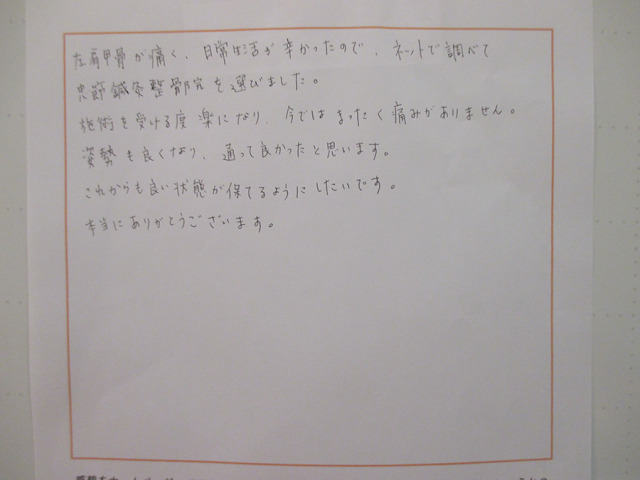 左肩甲骨が痛く、日常生活が辛かったので、ネットで調べて
忠節鍼灸整骨院を選びました。
施術を受ける度楽になり、今ではまったく痛みがありません。
姿勢も良くなり、通って良かったと思います。
これからも良い状態が保てるようにしたいです。
本当にありがとうございます。